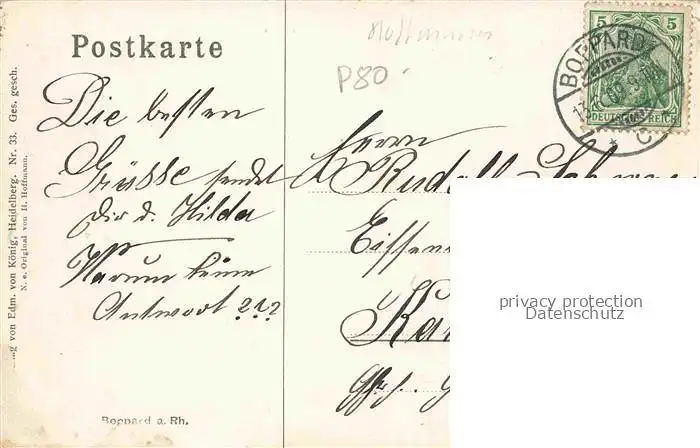 Postkarte
P80
Die besten
Grüsse sendet
Dir d. Hilda
Warum keine
Antwort ???
Boppard a. Rh.
Verlag von Edm. von König, Heidelberg. Nr. 33. Ges. gesch.
N. e. Original von H. Hoffmann.
Herrn
Rudolf
5 5
DEUTSCHES REICH
BOPPARD
privacy protection
Datenschutz